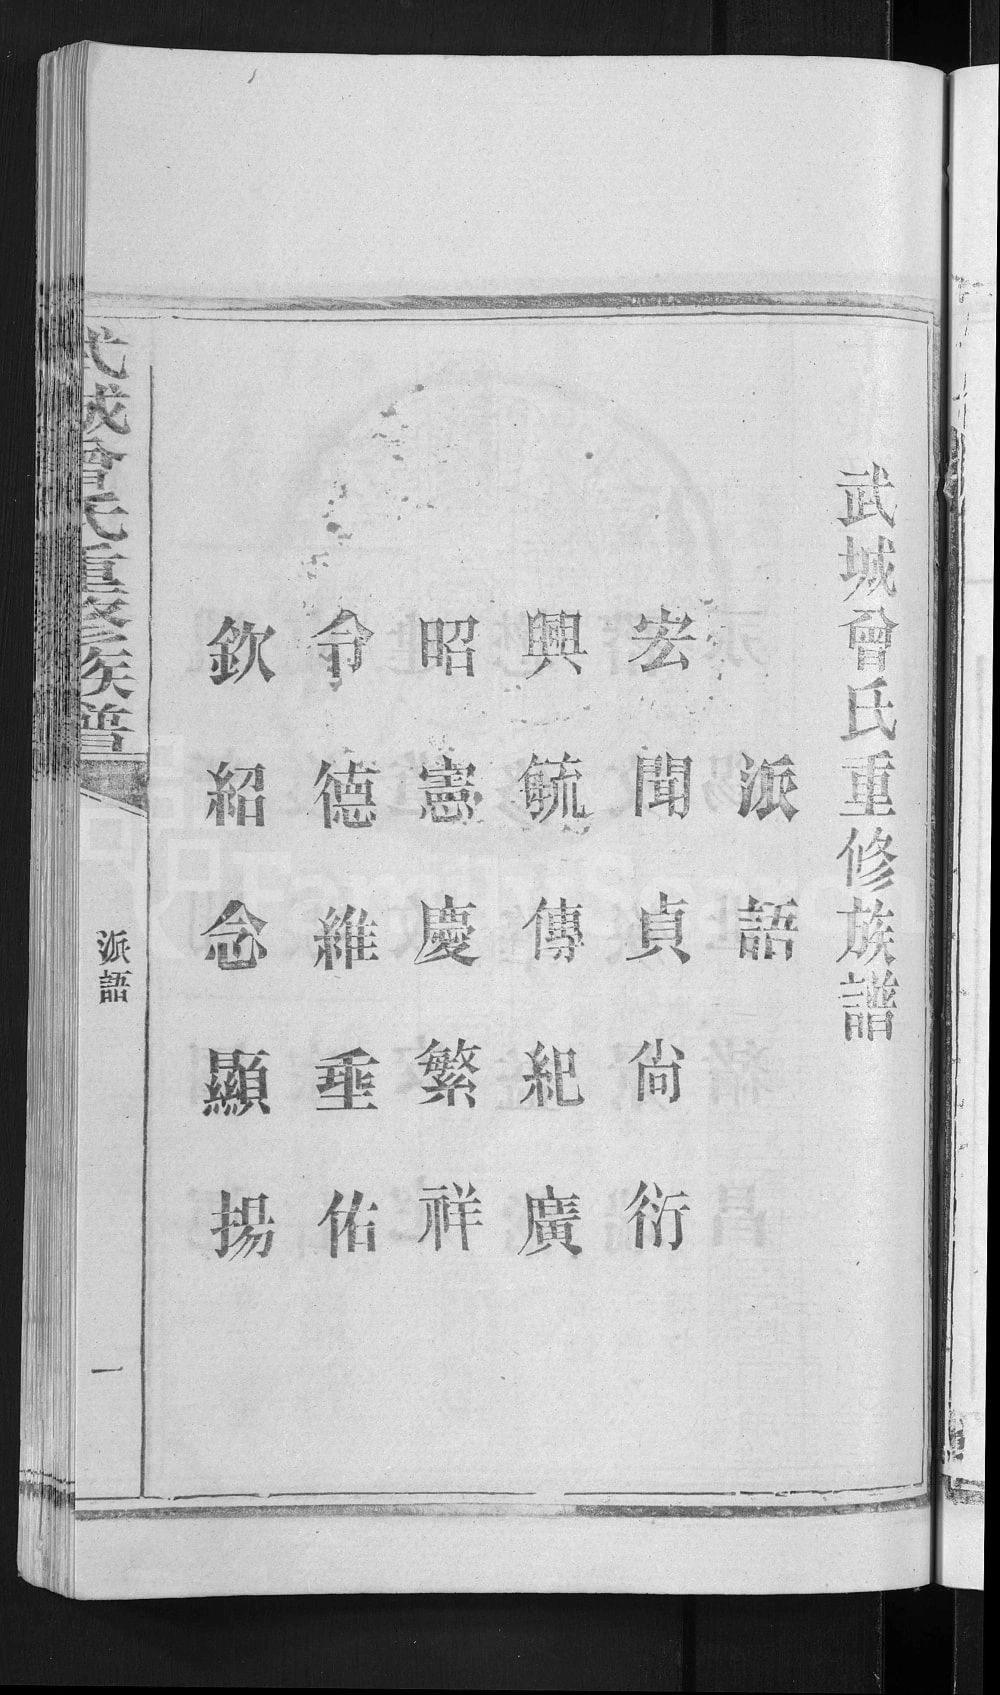 武城曾氏重修族譜
派語
宏聞貞尙衍
興毓傳紀廣
昭憲慶繁祥
令德維垂佑
欽紹念顯揚
武城曾氏重修族譜
派語
一